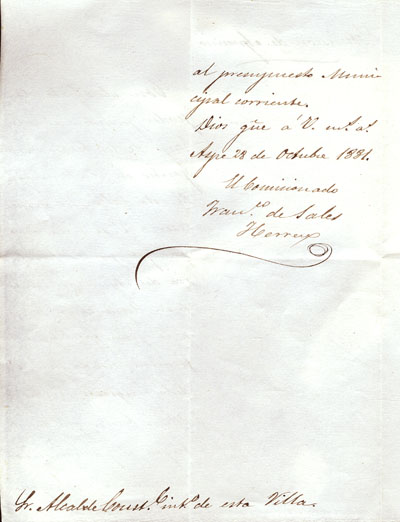 al presupuesto Muni
cipal corriente.
Dios gũe á V. ms. as.
Aspe 28 de Octubre 1881.
El Comisionado
Franco. de Sales
Herrero
Sr. Alcalde Constl. into. de esta Villa.